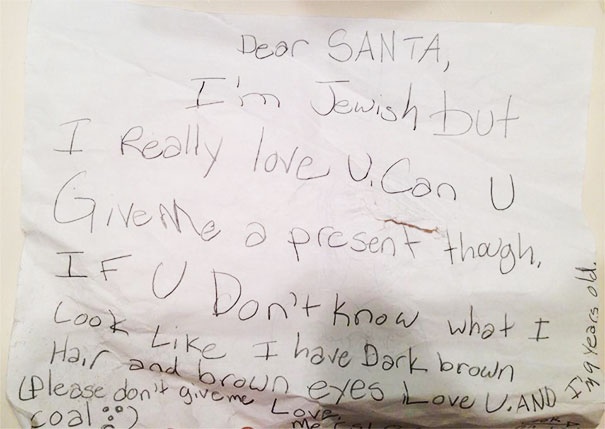 Dear SANTA,
I'm Jewish but
I Really love U. Can U
Give Me a present though.
IF U Don't know what I
Look Like I have Dark brown
Hair and brown eyes Love U. AND I'm 9 Years old.
(Please don't give me Love,
coal